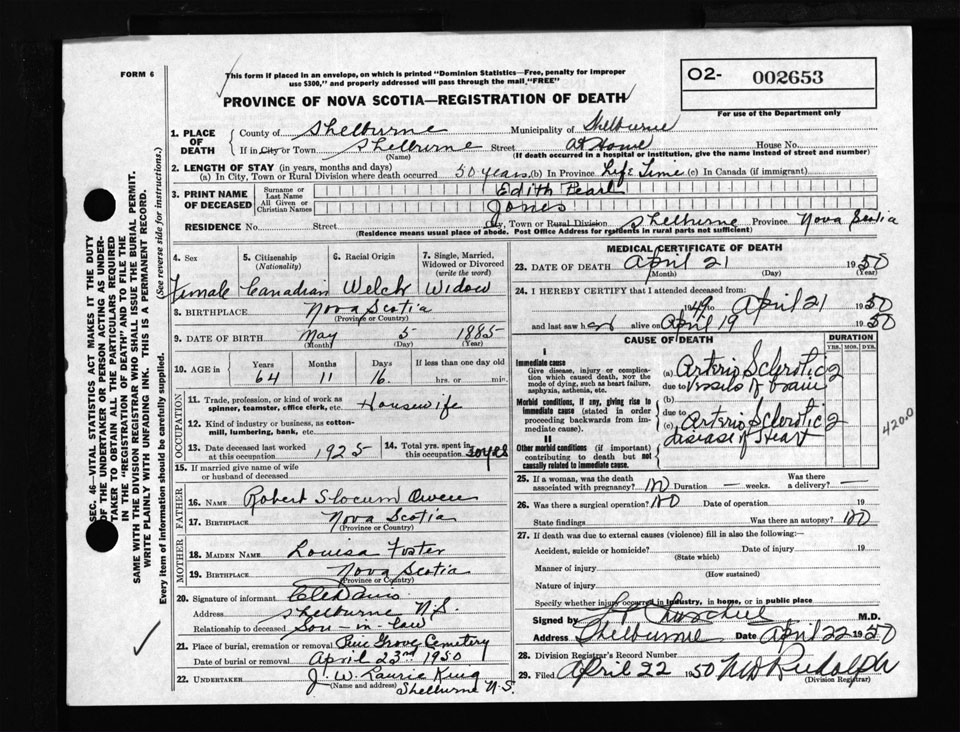 FORM 6
This form if placed in an envelope, on which is printed "Dominion Statistics—Free, penalty for improper
use $300," and properly addressed will pass through the mail, "FREE"
PROVINCE OF NOVA SCOTIA—REGISTRATION OF DEATH
O2- 002653
For use of the Department only
1. PLACE OF DEATH { County of Shelburne Municipality of Shelburne
If in City or Town Shelburne Street At Home House No.
(Name) (If death occurred in a hospital or institution, give the name instead of street and number)
2. LENGTH OF STAY (in years, months and days)
(a) In City, Town or Rural Division where death occurred 50 years (b) In Province Life Time (c) In Canada (if immigrant)
3. PRINT NAME OF DECEASED { Surname or Last Name Edith Pearl
All Given or Christian Names Jones
RESIDENCE No. Street City, Town or Rural Division Shelburne Province Nova Scotia
(Residence means usual place of abode. Post Office Address for residents in rural parts not sufficient)
4. Sex 5. Citizenship (Nationality) 6. Racial Origin 7. Single, Married, Widowed or Divorced (write the word)
Female Canadian Welch Widow
8. BIRTHPLACE Nova Scotia
(Province or Country)
9. DATE OF BIRTH May 5 1885
(Month) (Day) (Year)
10. AGE in { Years Months Days If less than one day old
64 11 16 hrs. or min.
OCCUPATION
11. Trade, profession, or kind of work as spinner, teamster, office clerk, etc. Housewife
12. Kind of industry or business, as cotton-mill, lumbering, bank, etc.
13. Date deceased last worked at this occupation 1925 14. Total yrs. spent in this occupation
15. If married give name of wife or husband of deceased
FATHER
16. NAME Robert Slocum Owen
17. BIRTHPLACE Nova Scotia
(Province or Country)
MOTHER
18. MAIDEN NAME Louisa Foster
19. BIRTHPLACE Nova Scotia
(Province or Country)
20. Signature of informant
Address Shelburne N.S.
Relationship to deceased Son-in-law
21. Place of burial, cremation or removal Pine Grove Cemetery
Date of burial or removal April 23rd 1950
22. UNDERTAKER J. W. Laurie King
(Name and address) Shelburne N.S.
MEDICAL CERTIFICATE OF DEATH
23. DATE OF DEATH April 21 1950
(Month) (Day) (Year)
24. I HEREBY CERTIFY that I attended deceased from:
1949 to April 21 1950
and last saw her alive on April 19 1950
CAUSE OF DEATH DURATION
YRS. MOS. DYS.
I
Immediate cause
Give disease, injury or complication which caused death, NOT the mode of dying, such as heart failure, asphyxia, asthenia, etc.
(a) Arterio Sclerotic 2
due to vessels of brain
Morbid conditions, if any, giving rise to immediate cause (stated in order proceeding backwards from immediate cause).
(b)
due to
(c) Arterio Sclerotic 2
disease of Heart
4200
II
Other morbid conditions (if important) contributing to death but not causally related to immediate cause.
25. If a woman, was the death associated with pregnancy? No Duration — weeks. Was there a delivery? —
26. Was there a surgical operation? No Date of operation 19
State findings Was there an autopsy? No
27. If death was due to external causes (violence) fill in also the following:—
Accident, suicide or homicide? Date of injury 19
(State which)
Manner of injury
(How sustained)
Nature of injury
Specify whether injury occurred in industry, in home, or in public place
Signed by M.D.
Address Shelburne Date April 22 1950
28. Division Registrar's Record Number
29. Filed April 22 1950 Rudolph
(Division Registrar)
SEC. 46—VITAL STATISTICS ACT MAKES IT THE DUTY
OF THE UNDERTAKER OR PERSON ACTING AS UNDER-
TAKER TO OBTAIN ALL THE PARTICULARS REQUIRED
IN THE "REGISTRATION OF DEATH" AND TO FILE THE
SAME WITH THE DIVISION REGISTRAR WHO SHALL ISSUE THE BURIAL PERMIT.
WRITE PLAINLY WITH UNFADING INK. THIS IS A PERMANENT RECORD.
Every item of information should be carefully supplied. (See reverse side for instructions.)